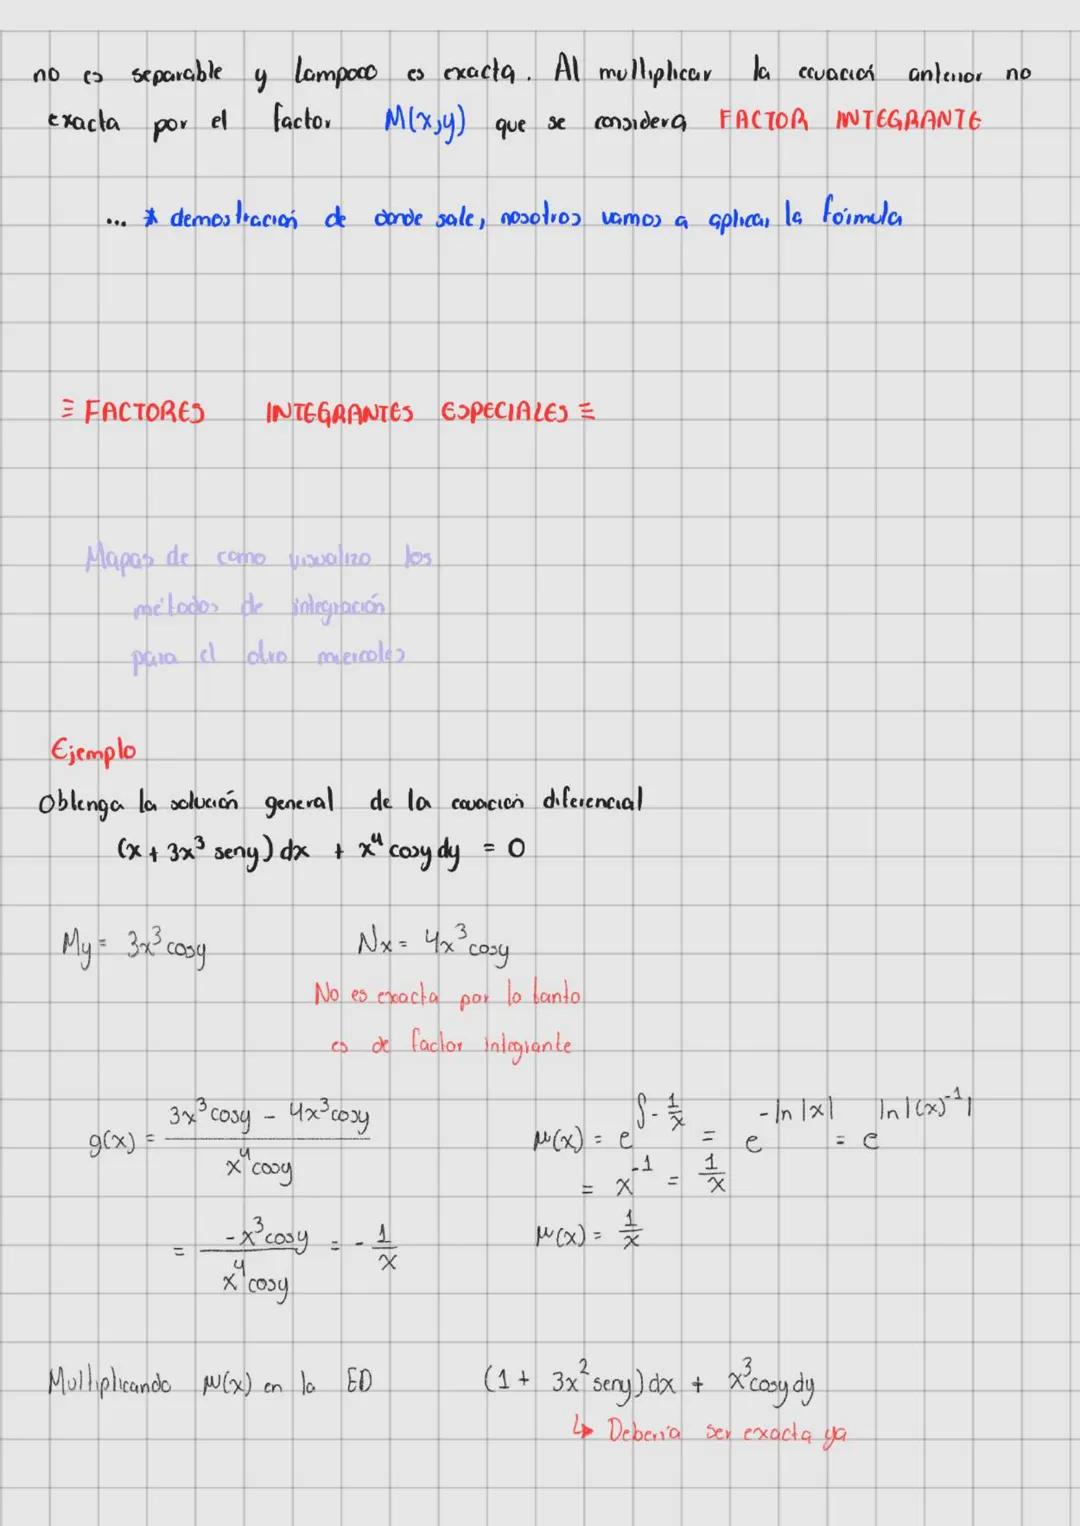 no es separable y tampoco es exacta. Al multiplicar la ecuación anterior no
exacta por el factor M(x,y) que se considera FACTOR INTEGRANTE
... * demostración de donde sale, nosotros vamos a aplicar la fórmula
≡ FACTORES INTEGRANTES ESPECIALES ≡
Mapas de como visualizo los
métodos de integración
para el otro miercoles
Ejemplo
Obtenga la solución general de la ecuación diferencial
(x + 3x³ seny) dx + x⁴ cosy dy = 0
My = 3x³ cosy Nx = 4x³ cosy
No es exacta por lo tanto
es de factor integrante
g(x) = (3x³ cosy - 4x³ cosy) / (x⁴ cosy)
= (-x³ cosy) / (x⁴ cosy) = - 1/x
μ(x) = e^(∫ - 1/x) = e^(-ln |x|) = e^(ln |(x)⁻¹|)
= x⁻¹ = 1/x
μ(x) = 1/x
Multiplicando μ(x) en la ED (1 + 3x² seny) dx + x³ cosy dy
↳ Debería ser exacta ya